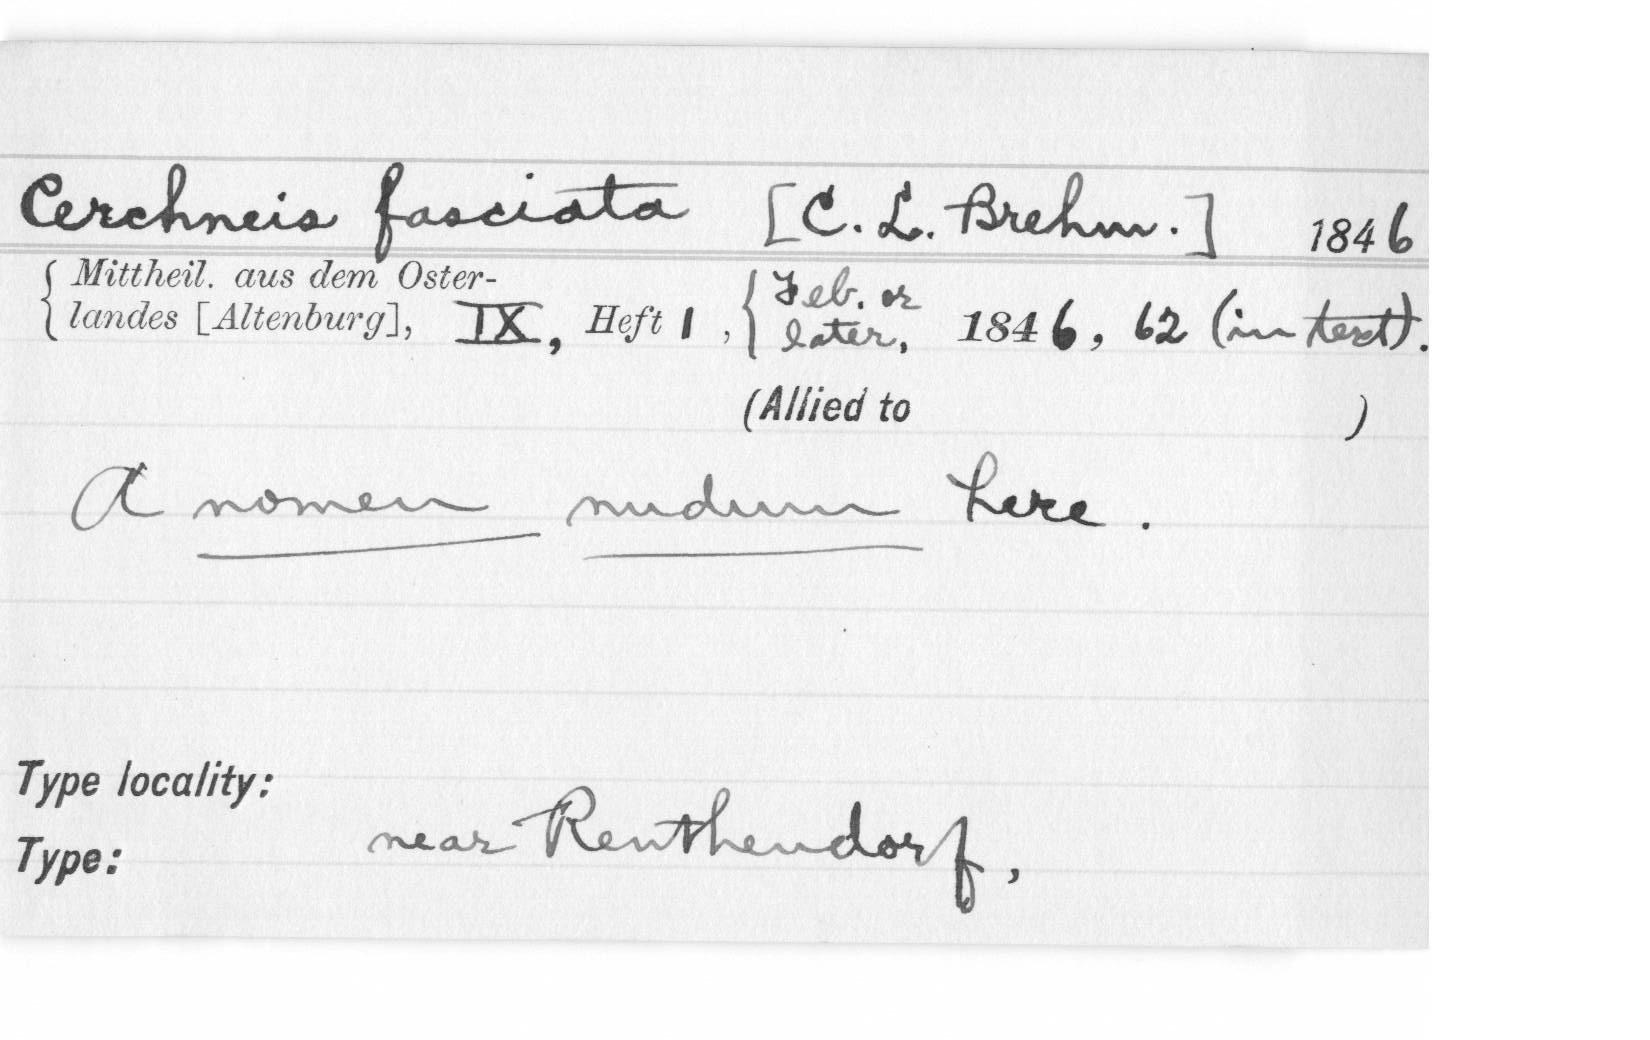 Cerchneis fasciata [C. L. Brehm.] 1846
Mittheil. aus dem Oster-
landes [Altenburg], IX, Heft 1, { Feb. or later, 1846, 62 (in text).
(Allied to )
A nomen nudum here.
Type locality:
near Renthendorf,
Type: